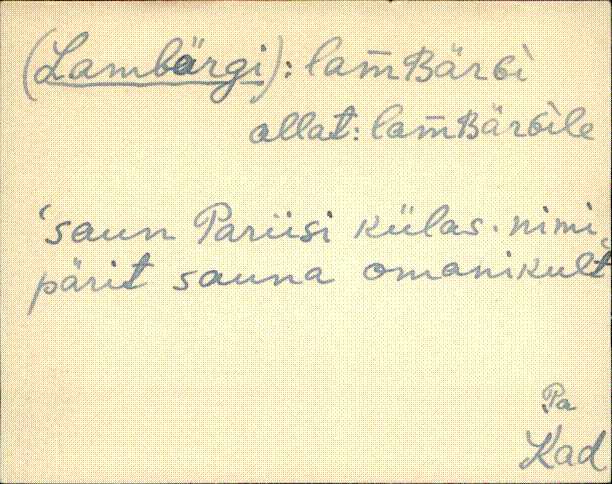 (Lambärgi): lam̄BärGì
allat: lam̄BärGìle
'saun Pariisi külas. nimi
pärit sauna omanikult
Pa
Kad